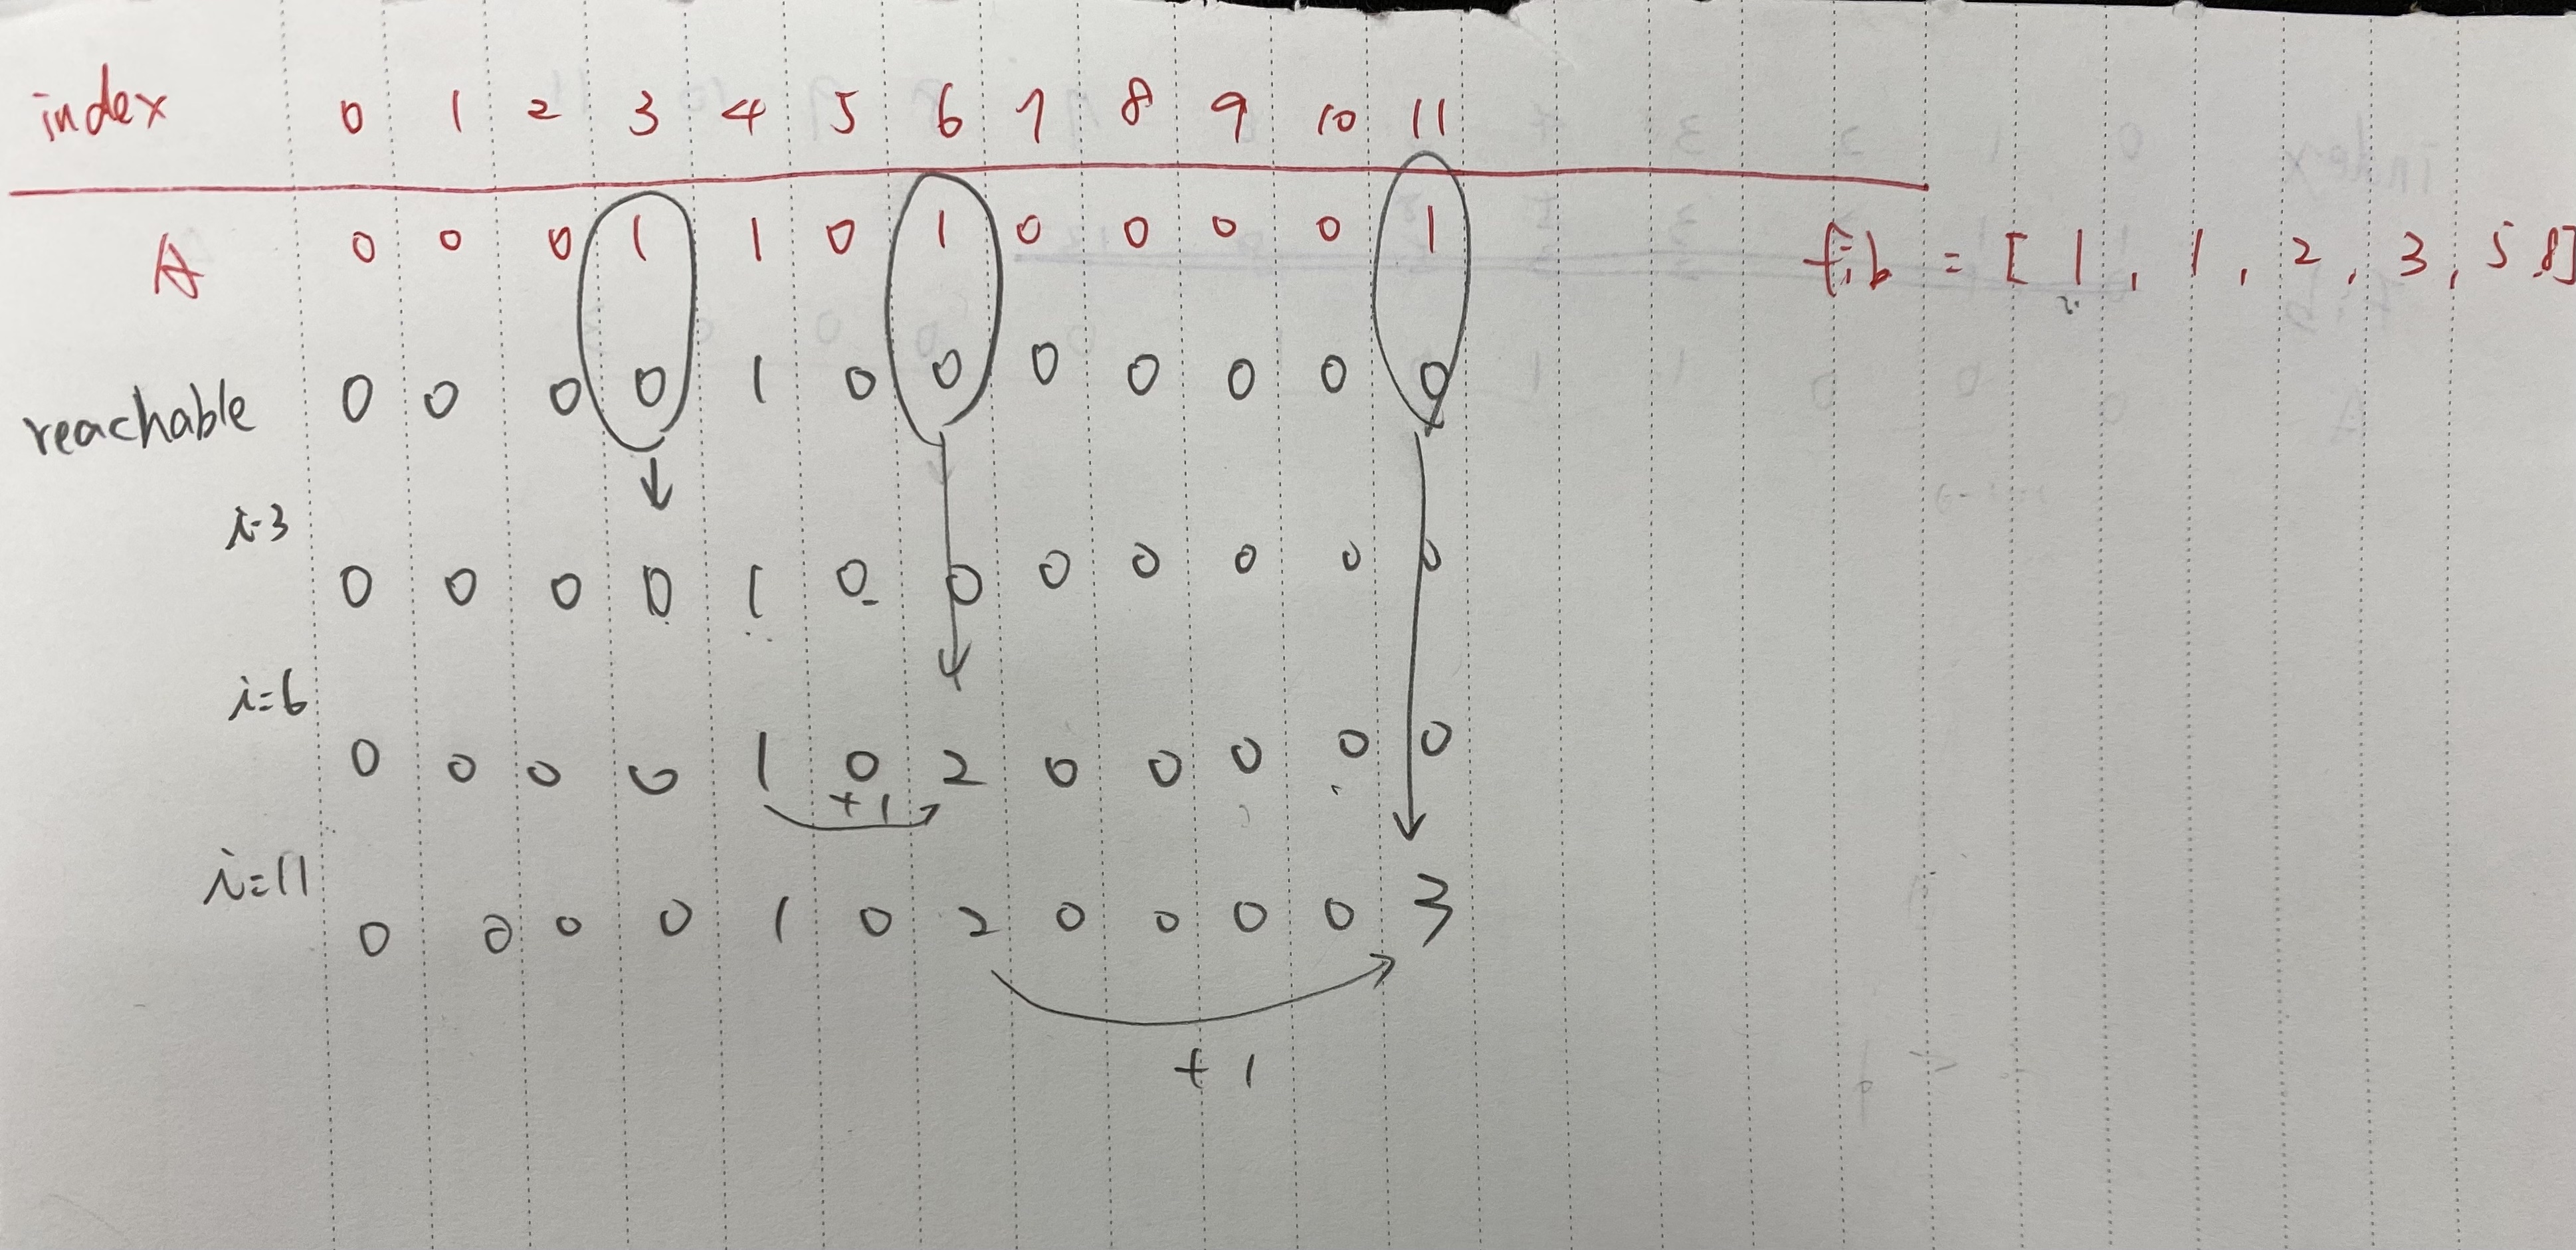 index 0 1 2 3 4 5 6 7 8 9 10 11
A 0 0 0 1 1 0 1 0 0 0 0 1 fib = [ 1, 1, 2, 3, 5 8]
reachable 0 0 0 0 1 0 0 0 0 0 0 0
i=3
0 0 0 0 1 0 0 0 0 0 0 0
i=6
0 0 0 0 1 0 2 0 0 0 0 0
+1
i=11
0 0 0 0 1 0 2 0 0 0 0 3
+1